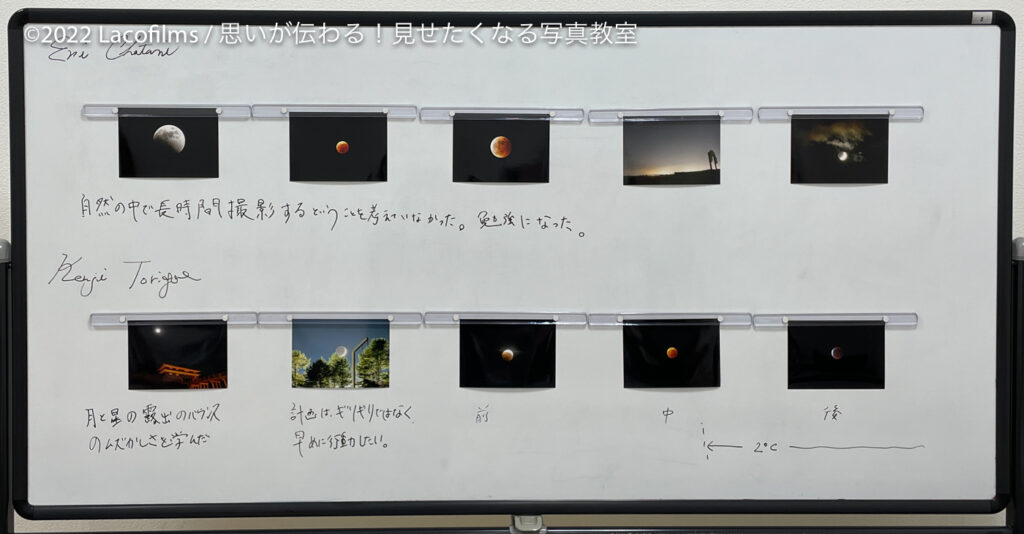 ©2022 Lacofilms / 思いが伝わる！見せたくなる写真教室
自然の中で長時間撮影するということを考えていなかった。勉強になった。
Kenji Torigoe
月と星の露出のバランス
のムズかしさを学んだ
計画は、ギリギリではなく
早めに行動したい。
前
中
後
2℃